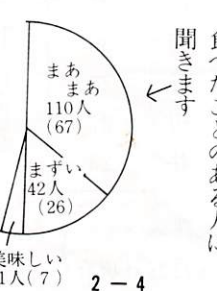 食べたことのある人に
聞きます
まあ
まあ
110人
(67)
まずい
42人
(26)
美味しい
1人(7)
2－4